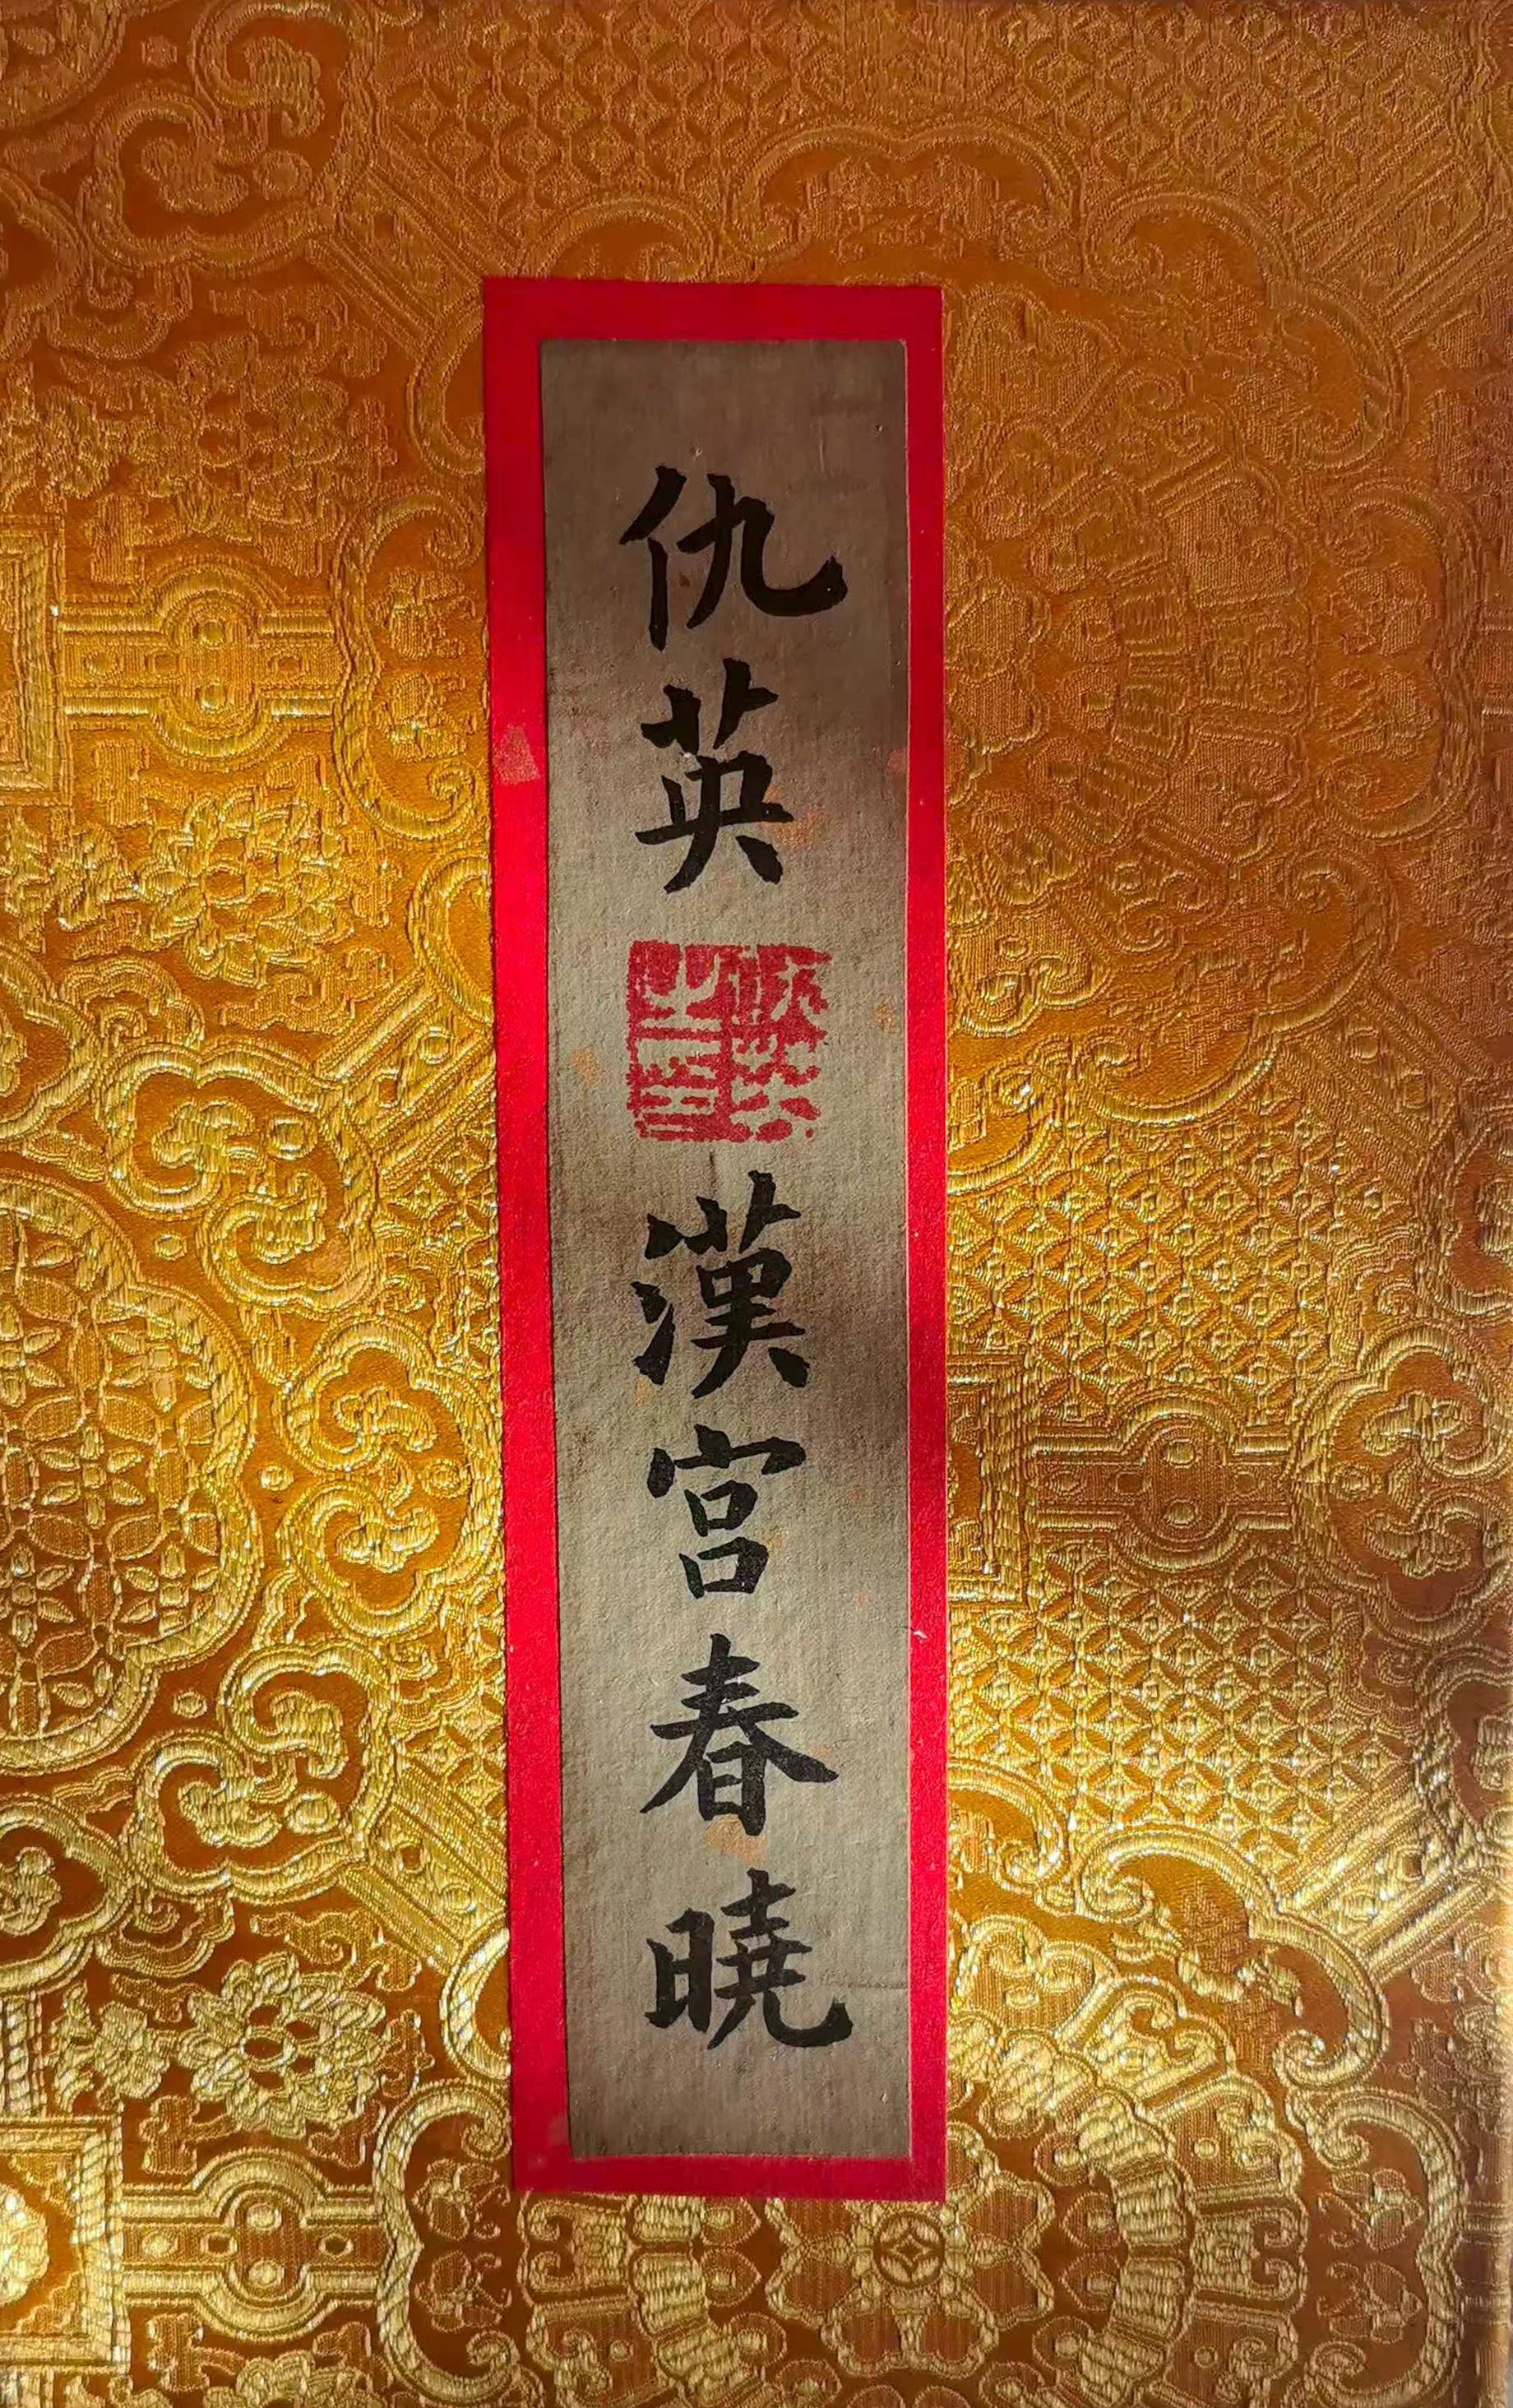 仇英
漢宮春曉